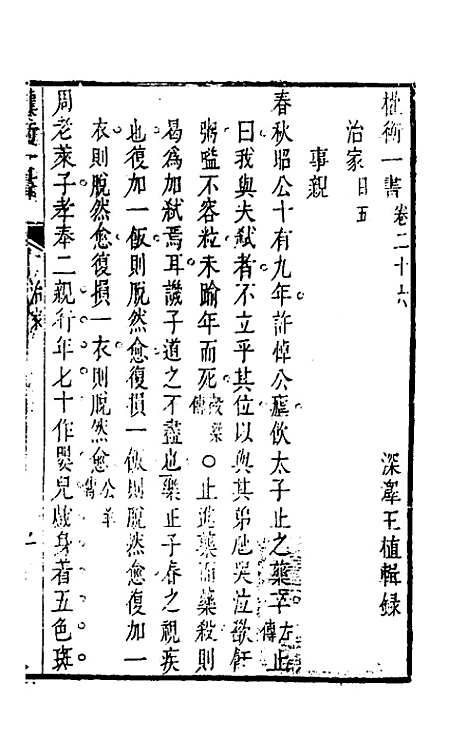 權衡一書卷二十六
深澤王植輯録
治家目五
事親
春秋昭公十有九年許悼公瘧飲太子止之藥卒左傳止
曰我與夫弑者不立乎其位以與其弟虺哭泣歠飦
粥嗌不容粒未踰年而死穀梁傳○止進藥而藥殺則
曷爲加弑焉耳譏子道之不盡也樂正子春之視疾
也復加一飯則脱然愈復損一飯則脱然愈復加一
衣則脱然愈復損一衣則脱然愈公羊傳
周老萊子孝奉二親行年七十作嬰兒戲身著五色斑
權衡一書
治家
一